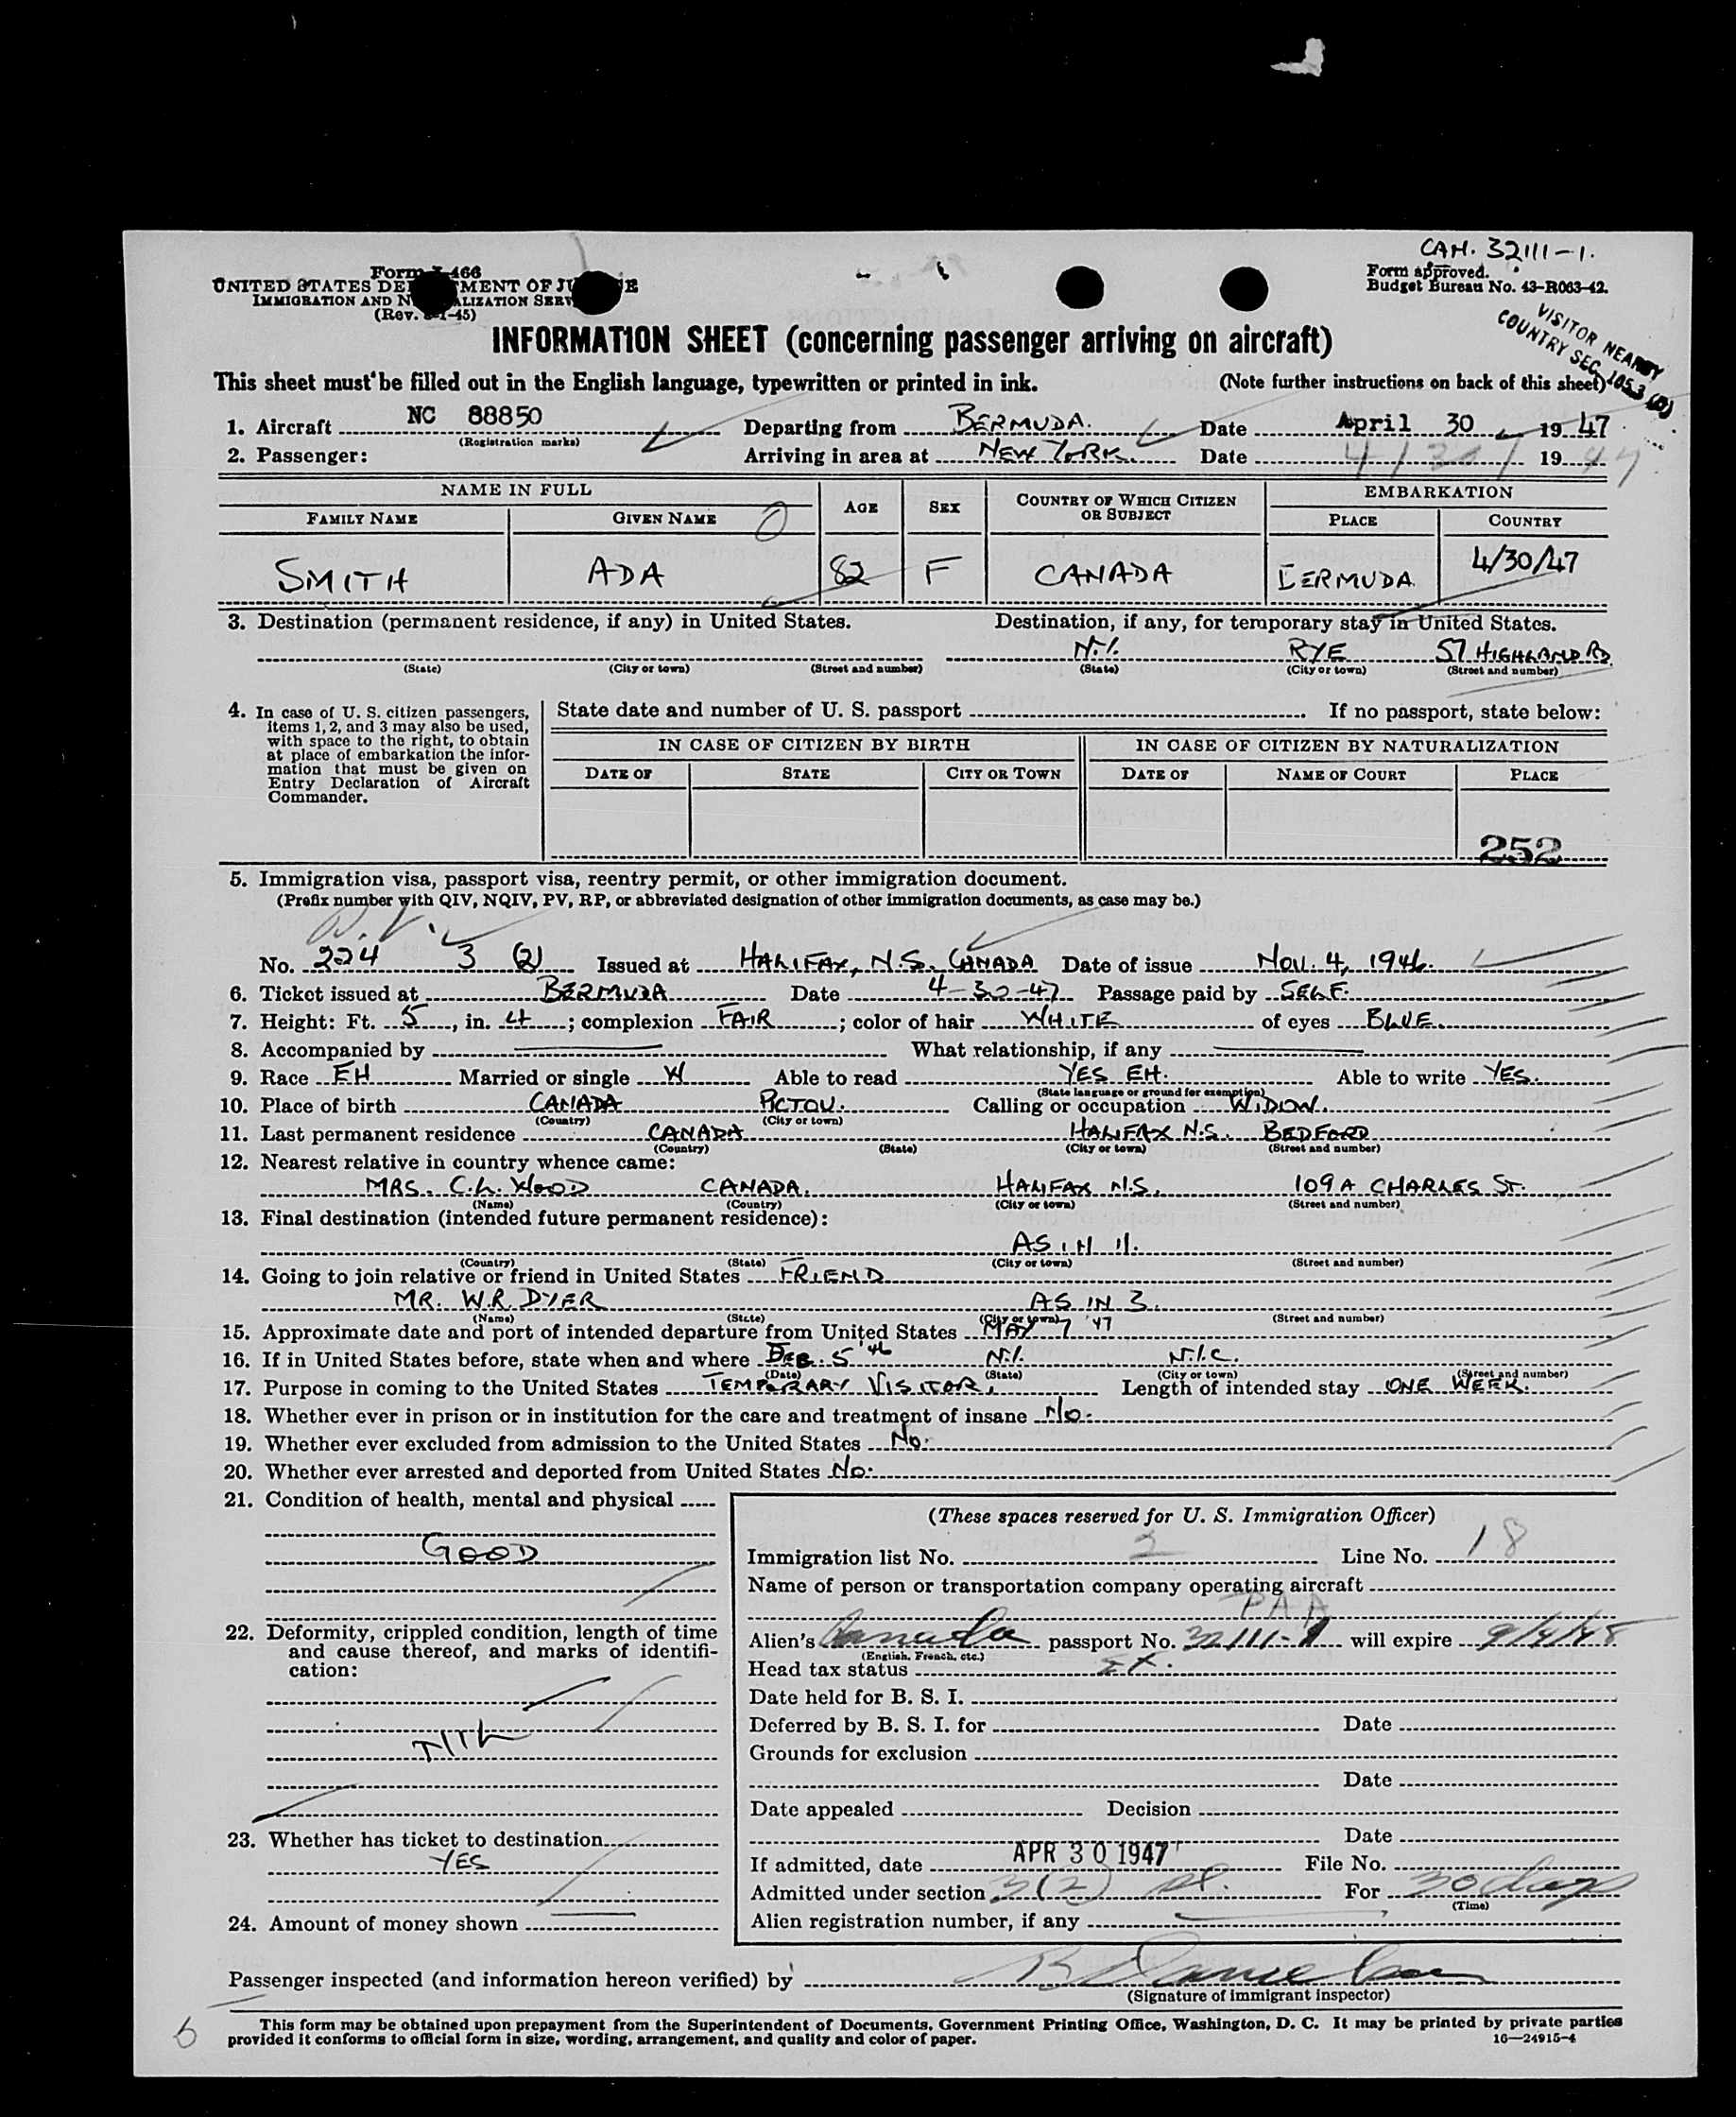 CAN. 32111-1.
Form 466
Form approved.
Budget Bureau No. 43-R063-42.
UNITED STATES DE MENT OF JU E
IMMIGRATION AND N ALIZATION SERV
(Rev. -1-45)
VISITOR NEARBY
COUNTRY SEC. 165.3 (B)
INFORMATION SHEET (concerning passenger arriving on aircraft)
This sheet must be filled out in the English language, typewritten or printed in ink. (Note further instructions on back of this sheet)
1. Aircraft NC 88850 Departing from BERMUDA. Date April 30 1947
(Registration marks)
2. Passenger: Arriving in area at NEW YORK. Date 4/30/ 1947
NAME IN FULL AGE SEX COUNTRY OF WHICH CITIZEN OR SUBJECT EMBARKATION
FAMILY NAME GIVEN NAME PLACE COUNTRY
SMITH ADA 82 F CANADA BERMUDA 4/30/47
3. Destination (permanent residence, if any) in United States. Destination, if any, for temporary stay in United States.
N.Y. RYE 57 HIGHLAND RD.
(State) (City or town) (Street and number) (State) (City or town) (Street and number)
4. In case of U. S. citizen passengers, items 1, 2, and 3 may also be used, with space to the right, to obtain at place of embarkation the information that must be given on Entry Declaration of Aircraft Commander.
State date and number of U. S. passport If no passport, state below:
IN CASE OF CITIZEN BY BIRTH IN CASE OF CITIZEN BY NATURALIZATION
DATE OF STATE CITY OR TOWN DATE OF NAME OF COURT PLACE
252
5. Immigration visa, passport visa, reentry permit, or other immigration document.
(Prefix number with QIV, NQIV, PV, RP, or abbreviated designation of other immigration documents, as case may be.)
No. 224 3 (2) Issued at HALIFAX, N.S. CANADA Date of issue NOV. 4, 1946.
6. Ticket issued at BERMUDA Date 4-30-47 Passage paid by SELF.
7. Height: Ft. 5, in. 4; complexion FAIR; color of hair WHITE of eyes BLUE.
8. Accompanied by What relationship, if any
9. Race EH Married or single W Able to read YES EH. Able to write YES.
(State language or ground for exemption)
10. Place of birth CANADA PICTOU. Calling or occupation WIDOW.
(Country) (City or town)
11. Last permanent residence CANADA HALIFAX N.S. BEDFORD
(Country) (State) (City or town) (Street and number)
12. Nearest relative in country whence came:
MRS. C.L. WOOD CANADA. HALIFAX N.S. 109A CHARLES ST.
(Name) (Country) (City or town) (Street and number)
13. Final destination (intended future permanent residence):
AS IN 11.
(Country) (State) (City or town) (Street and number)
14. Going to join relative or friend in United States FRIEND
MR. W.R. DYER AS IN 3.
(Name) (State) (City or town) (Street and number)
15. Approximate date and port of intended departure from United States MAY 7 '47
16. If in United States before, state when and where DEC. 5 '46 N.Y. N.Y.C.
(Date) (State) (City or town) (Street and number)
17. Purpose in coming to the United States TEMPORARY VISITOR. Length of intended stay ONE WEEK.
18. Whether ever in prison or in institution for the care and treatment of insane No.
19. Whether ever excluded from admission to the United States No.
20. Whether ever arrested and deported from United States No.
21. Condition of health, mental and physical
GOOD
22. Deformity, crippled condition, length of time and cause thereof, and marks of identification:
NIL
23. Whether has ticket to destination
YES
24. Amount of money shown
(These spaces reserved for U. S. Immigration Officer)
Immigration list No. 2 Line No. 18
Name of person or transportation company operating aircraft
PAA
Alien's Canada passport No. 32111-1 will expire 9/4/48
(English, French, etc.)
Head tax status EX.
Date held for B. S. I.
Deferred by B. S. I. for Date
Grounds for exclusion
Date
Date appealed Decision
Date
If admitted, date APR 30 1947 File No.
Admitted under section 3(2) For 30 days
(Time)
Alien registration number, if any
Passenger inspected (and information hereon verified) by
(Signature of immigrant inspector)
This form may be obtained upon prepayment from the Superintendent of Documents, Government Printing Office, Washington, D. C. It may be printed by private parties
provided it conforms to official form in size, wording, arrangement, and quality and color of paper. 16—24915-4
6